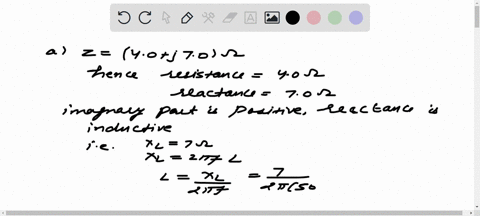 a) Z = (4.0+j 7.0) Ω
hence resistance = 4.0 Ω
reactance = 7.0 Ω
imagnary part is positive, reactance is
inductive
i.e. XL = 7 Ω
XL = 2πf L
L = XL/2πf = 7/2π(50